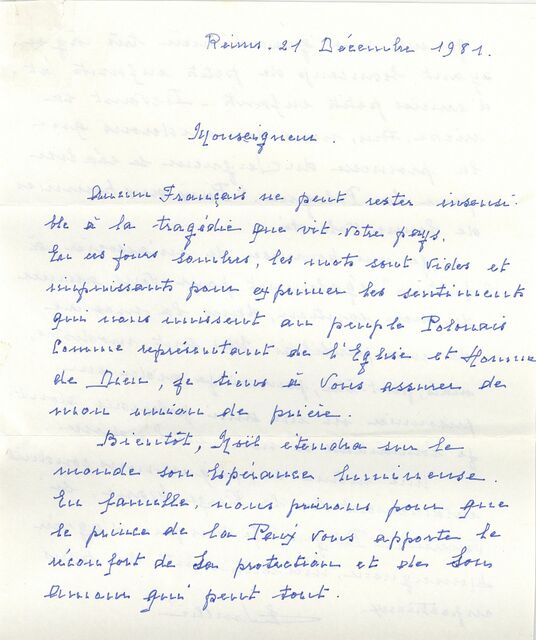 Reims. 21 Décembre 1981.
Monseigneur.
Aucun Français ne peut rester insensi-
ble à la tragédie que vit votre pays.
En ces jours sombres, les mots sont vides et
impuissants pour exprimer les sentiments
qui nous unissent au peuple Polonais
Comme représentant de l'Eglise et Homme
de Dieu, je tiens à vous assurer de
mon union de prière.
Bientôt, Noël étendra sur le
monde son Espérance lumineuse.
En famille, nous prierons pour que
le prince de la Paix vous apporte le
réconfort de Sa protection et de Son
Amour qui peut tout.